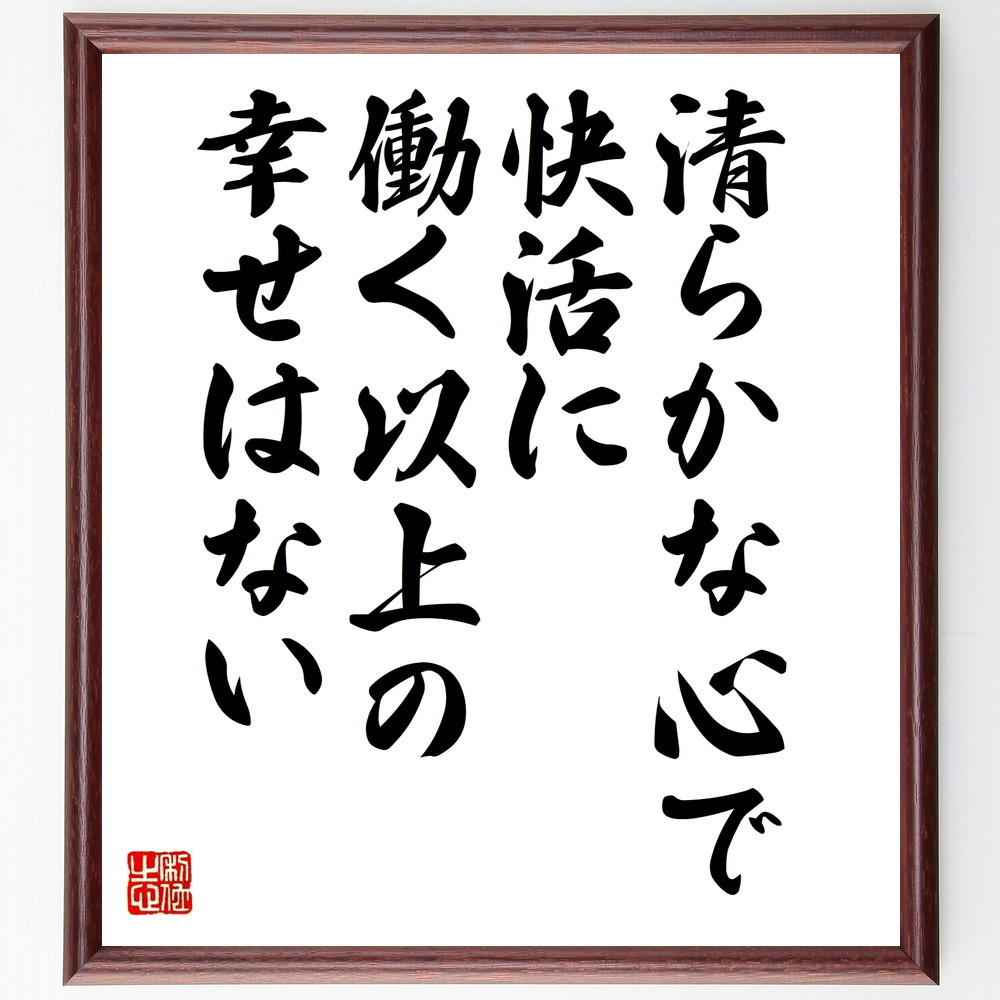 清らかな心で
快活に
働く以上の
幸せはない